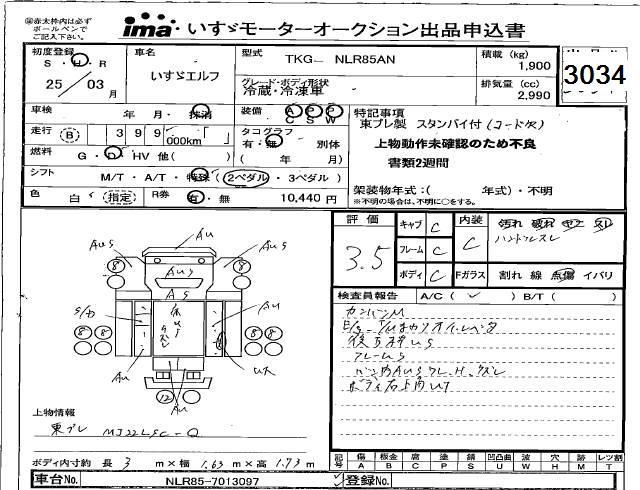 ㊟赤太枠内は必ず
ボールペンで
ご記入下さい。
ima いすゞモーターオークション出品申込書
初度登録
S・H・R
25 / 03 月
車名
いすゞエルフ
型式
TKG- NLR85AN
グレード・ボディ形状
冷蔵・冷凍車
積載 (kg)
1,900
排気量 (cc)
2,990
3034
車検 年 月・抹消
装備 A P P
C S W
走行 (B) 399 000km
タコグラフ
有・無 別体
( 年 月)
燃料 G・D・HV 他( )
シフト M/T・A/T・特殊(2ペダル・3ペダル)
色 白 (指定) R券 有・無 10,440 円
特記事項
東プレ製 スタンバイ付(コード欠)
上物動作未確認のため不良
書類2週間
架装物年式:( 年式)・不明
※不明の場合は、不明に○をする。
評価
3.5
キャブ C
フレーム C
ボディ C
内装
C
汚れ 破れ ヤケ スレ
ハンドルスレ
Fガラス 割れ 線 点傷 イバリ
検査員報告 A/C( ✓ ) B/T( )
フレームS
ボディ右上角UT
AU
AUS
AUS
8
8
AUS
AS
S/A
AU
8 8
8 8
AU
12
AU
上物情報
東プレ MJ22LFC-Q
ボディ内寸約 長 3 m×幅 1.63 m×高 1.73 m
記号 傷 板金 腐 塗 錆 凹凸曲 波 穴 跡 レツ割
A B C P S U W H M T
車台No. NLR85-7013097
登録No.